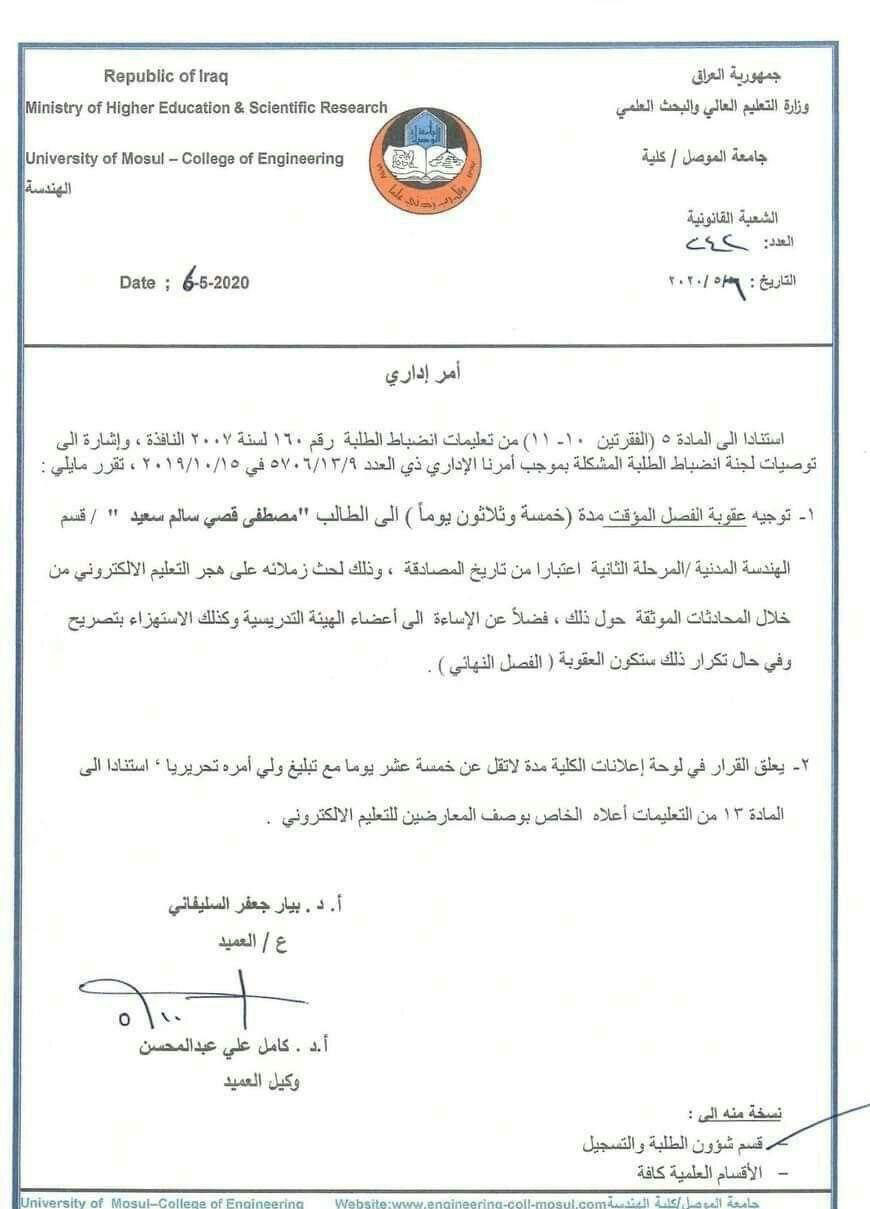 Republic of Iraq
جمهورية العراق
Ministry of Higher Education & Scientific Research
وزارة التعليم العالي والبحث العلمي
University of Mosul – College of Engineering
جامعة الموصل / كلية
الهندسة
الشعبة القانونية
العدد: ٢٤٢
Date ; 6-5-2020
التاريخ : ٦/٥/٢٠٢٠
أمر إداري
استنادا الى المادة ٥ (الفقرتين ١٠- ١١) من تعليمات انضباط الطلبة رقم ١٦٠ لسنة ٢٠٠٧ النافذة ، وإشارة الى
توصيات لجنة انضباط الطلبة المشكلة بموجب أمرنا الإداري ذي العدد ٥٧٠٦/١٣/٩ في ٢٠١٩/١٠/١٥ ، تقرر مايلي :
١- توجيه عقوبة الفصل المؤقت مدة (خمسة وثلاثون يوماً ) الى الطالب "مصطفى قصي سالم سعيد " / قسم
الهندسة المدنية /المرحلة الثانية اعتبارا من تاريخ المصادقة ، وذلك لحث زملائه على هجر التعليم الالكتروني من
خلال المحادثات الموثقة حول ذلك ، فضلاً عن الإساءة الى أعضاء الهيئة التدريسية وكذلك الاستهزاء بتصريح
وفي حال تكرار ذلك ستكون العقوبة ( الفصل النهائي ) .
٢- يعلق القرار في لوحة إعلانات الكلية مدة لاتقل عن خمسة عشر يوما مع تبليغ ولي أمره تحريريا ‘ استنادا الى
المادة ١٣ من التعليمات أعلاه الخاص بوصف المعارضين للتعليم الالكتروني .
أ. د . بيار جعفر السليفاني
ع / العميد
أ.د . كامل علي عبدالمحسن
وكيل العميد
نسخة منه الى :
– قسم شؤون الطلبة والتسجيل
– الأقسام العلمية كافة
University of Mosul–College of Engineering Website:www.engineering-coll-mosul.com جامعة الموصل/كلية الهندسة